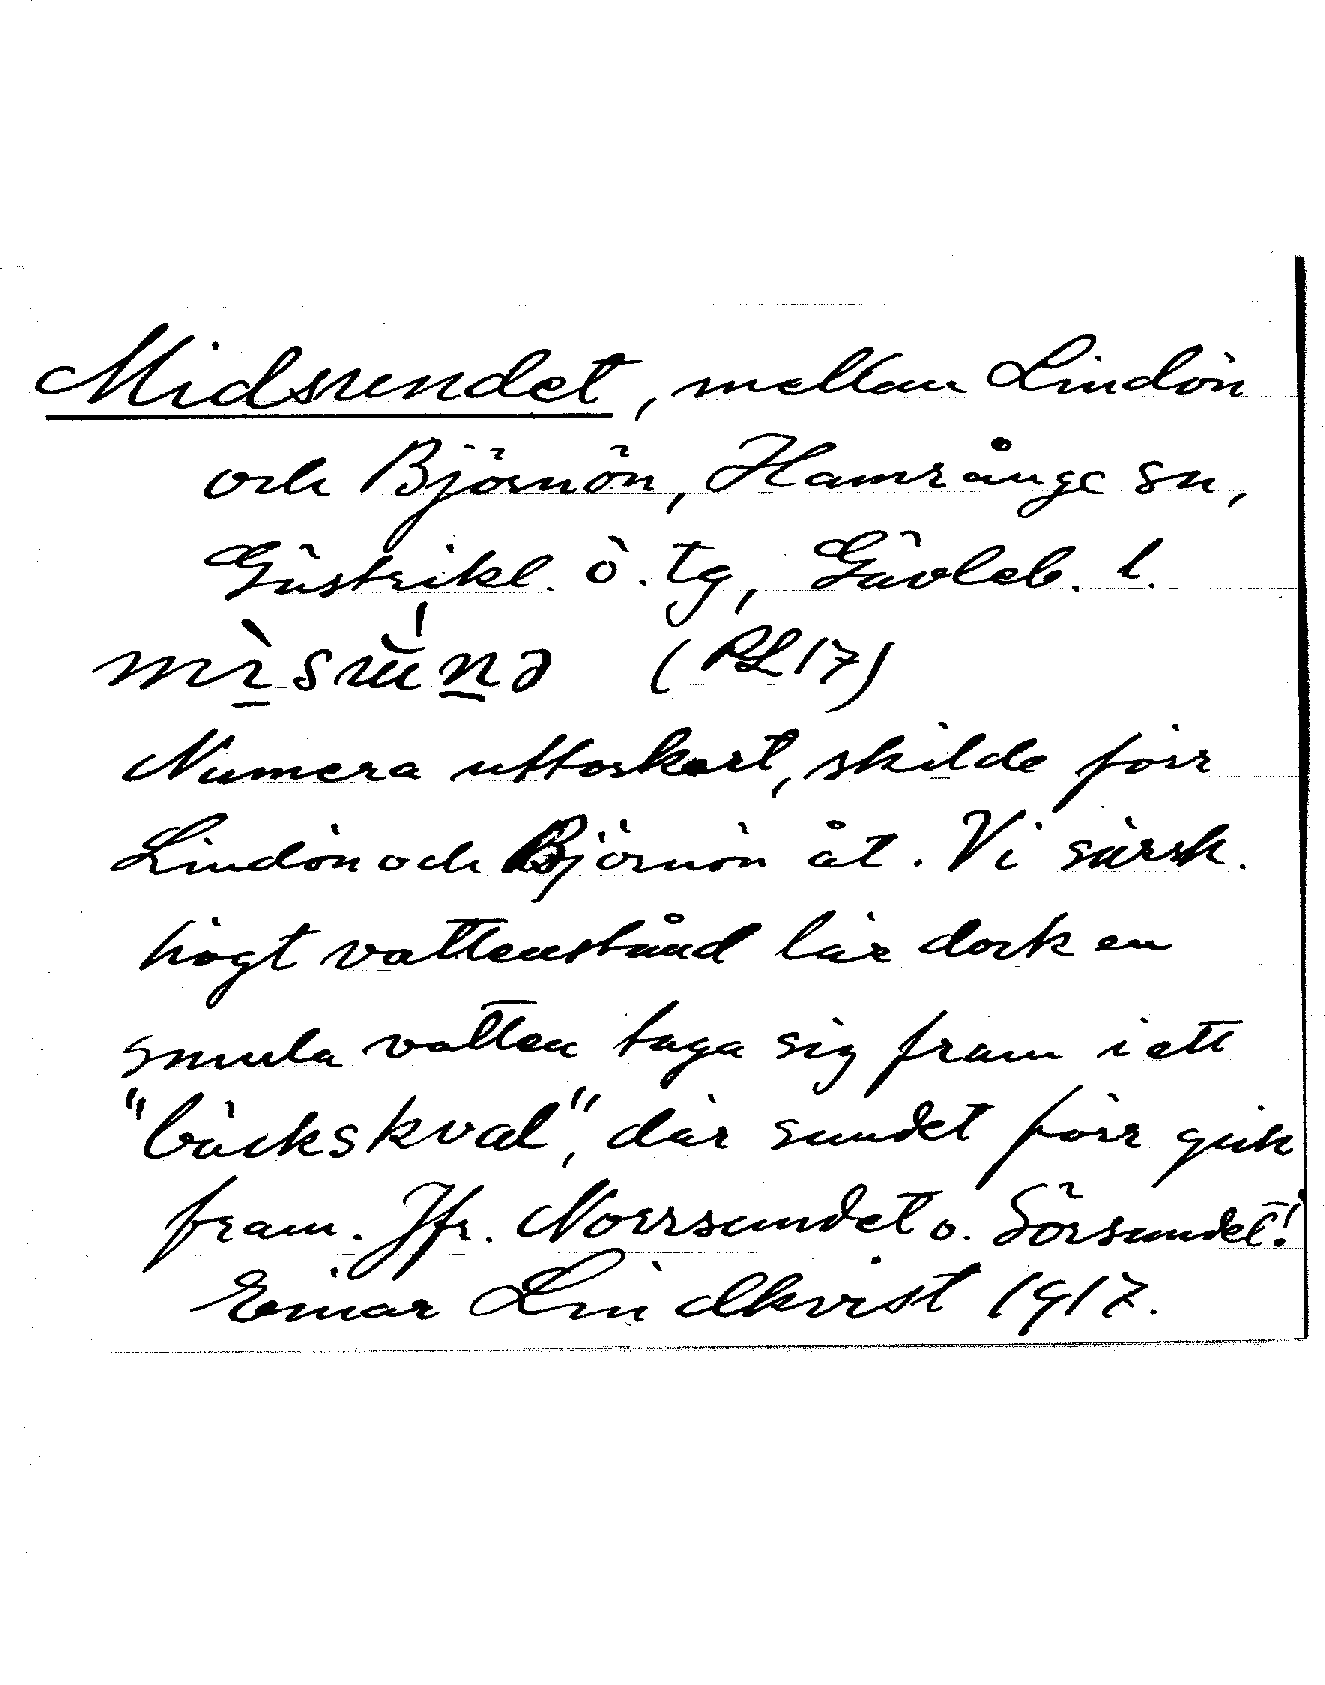 Midsundet, mellan Lindön
och Björnön, Hamrånge sn,
Gästrikl. ö. tg, Gävleb. l.
(RL 17)
Numera uttorkart, skilde förr
Lindön och Björnön åt. Vi särsk.
högt vattenstånd lär dock en
smula vatten taga sig fram i ett
"bäckskval", där sundet förr gick
fram. Jfr. Norrsundet o. Sörsundet!
Einar Lindkvist 1917.